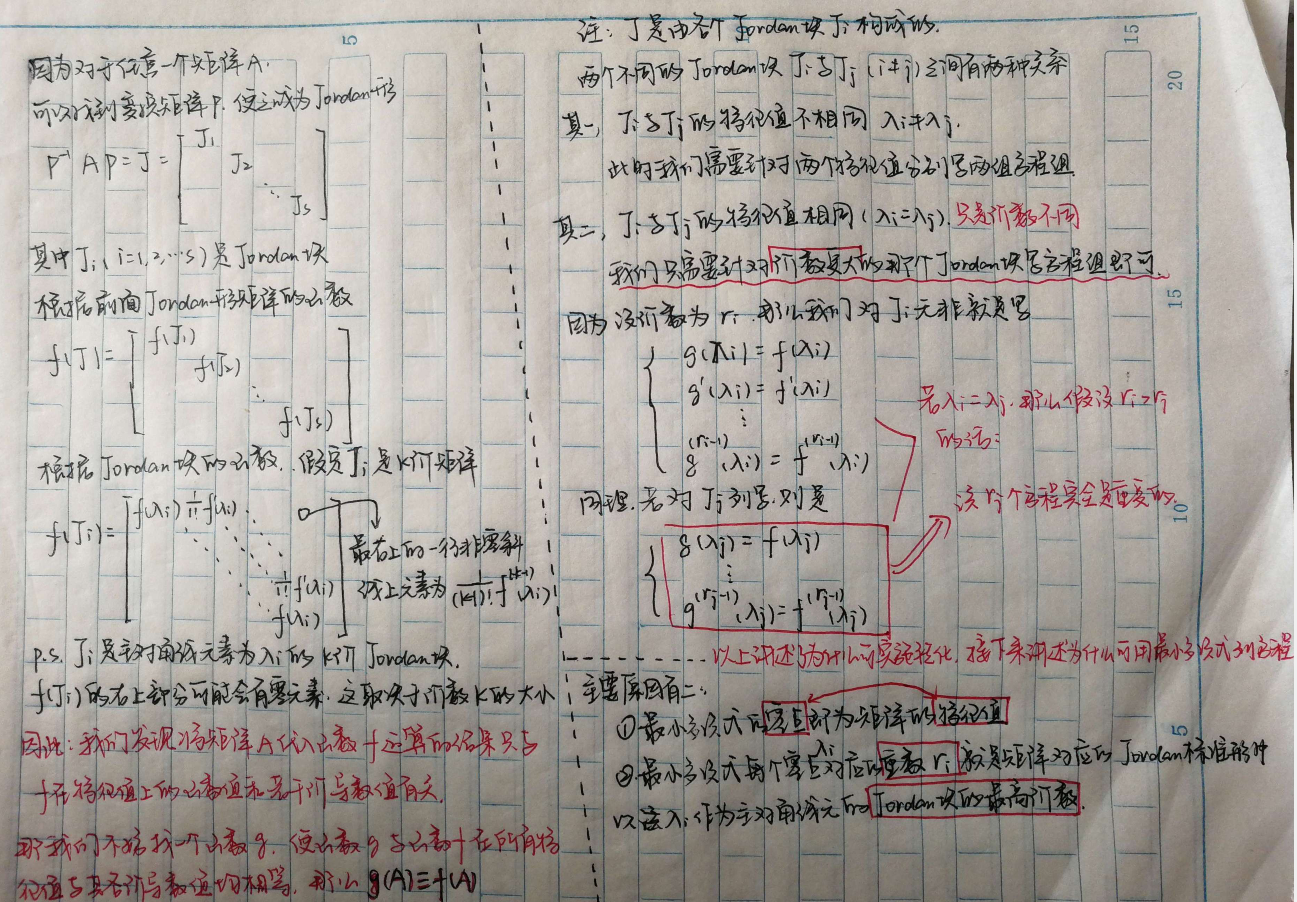 因为对于任意一个矩阵A.
可以找到变换矩阵P. 使之成为Jordan形
P⁻¹AP=J=[J₁ J₂ ⋱ Jₛ]
其中Jᵢ(i=1,2,…s)是Jordan块
根据前面Jordan形矩阵的函数
f(J)=[f(J₁) f(J₂) ⋱ f(Jₛ)]
根据Jordan块的函数. 假定Jᵢ是K阶矩阵
f(Jᵢ)=[f(λᵢ) 1/1! f'(λᵢ) ⋱ 1/1! f'(λᵢ) f(λᵢ)]
最右上的一行非零斜
线上元素为 1/(k-1)! f^(k-1)(λᵢ)
p.s. Jᵢ是主对角线元素为λᵢ的K阶Jordan块.
f(Jᵢ)的右上部分可能会有零元素. 这取决于阶数K的大小
因此: 我们发现将矩阵A代入函数f运算的结果只与
f在特征值上的函数值和若干阶导数值有关.
那我们不妨找一个函数g. 使函数g与函数f在所有特
征值与其各阶导数值均相等. 那么g(A)≡f(A)
注: J是由各个Jordan块Jᵢ构成的.
两个不同的Jordan块Jᵢ与Jⱼ(i≠j)之间有两种关系
其一, Jᵢ与Jⱼ的特征值不相同 λᵢ≠λⱼ.
此时我们需要针对两个特征值分别写两组方程组
其二, Jᵢ与Jⱼ的特征值相同(λᵢ=λⱼ). 只是阶数不同
我们只需要针对阶数更大的那个Jordan块写方程组即可.
因为 设阶数为rᵢ. 那么我们对Jᵢ无非就是写
g(λᵢ)=f(λᵢ)
g'(λᵢ)=f'(λᵢ)
⋮
g^(rᵢ-1)(λᵢ)=f^(rᵢ-1)(λᵢ)
若λᵢ=λⱼ. 那么假设rᵢ>rⱼ
的话:
该rⱼ个方程完全是重复的.
同理. 若对Jⱼ列写. 则是
g(λⱼ)=f(λⱼ)
⋮
g^(rⱼ-1)(λⱼ)=f^(rⱼ-1)(λⱼ)
以上讲述了为什么可 接下来讲述为什么可用最小多项式列方程
主要原因有二:
①最小多项式的零点即为矩阵的特征值
②最小多项式每个零点λᵢ对应的重数rᵢ就是矩阵对应的Jordan标准形中
以该λᵢ作为主对角线元的Jordan块的最高阶数.
5
15
20
15
10
5